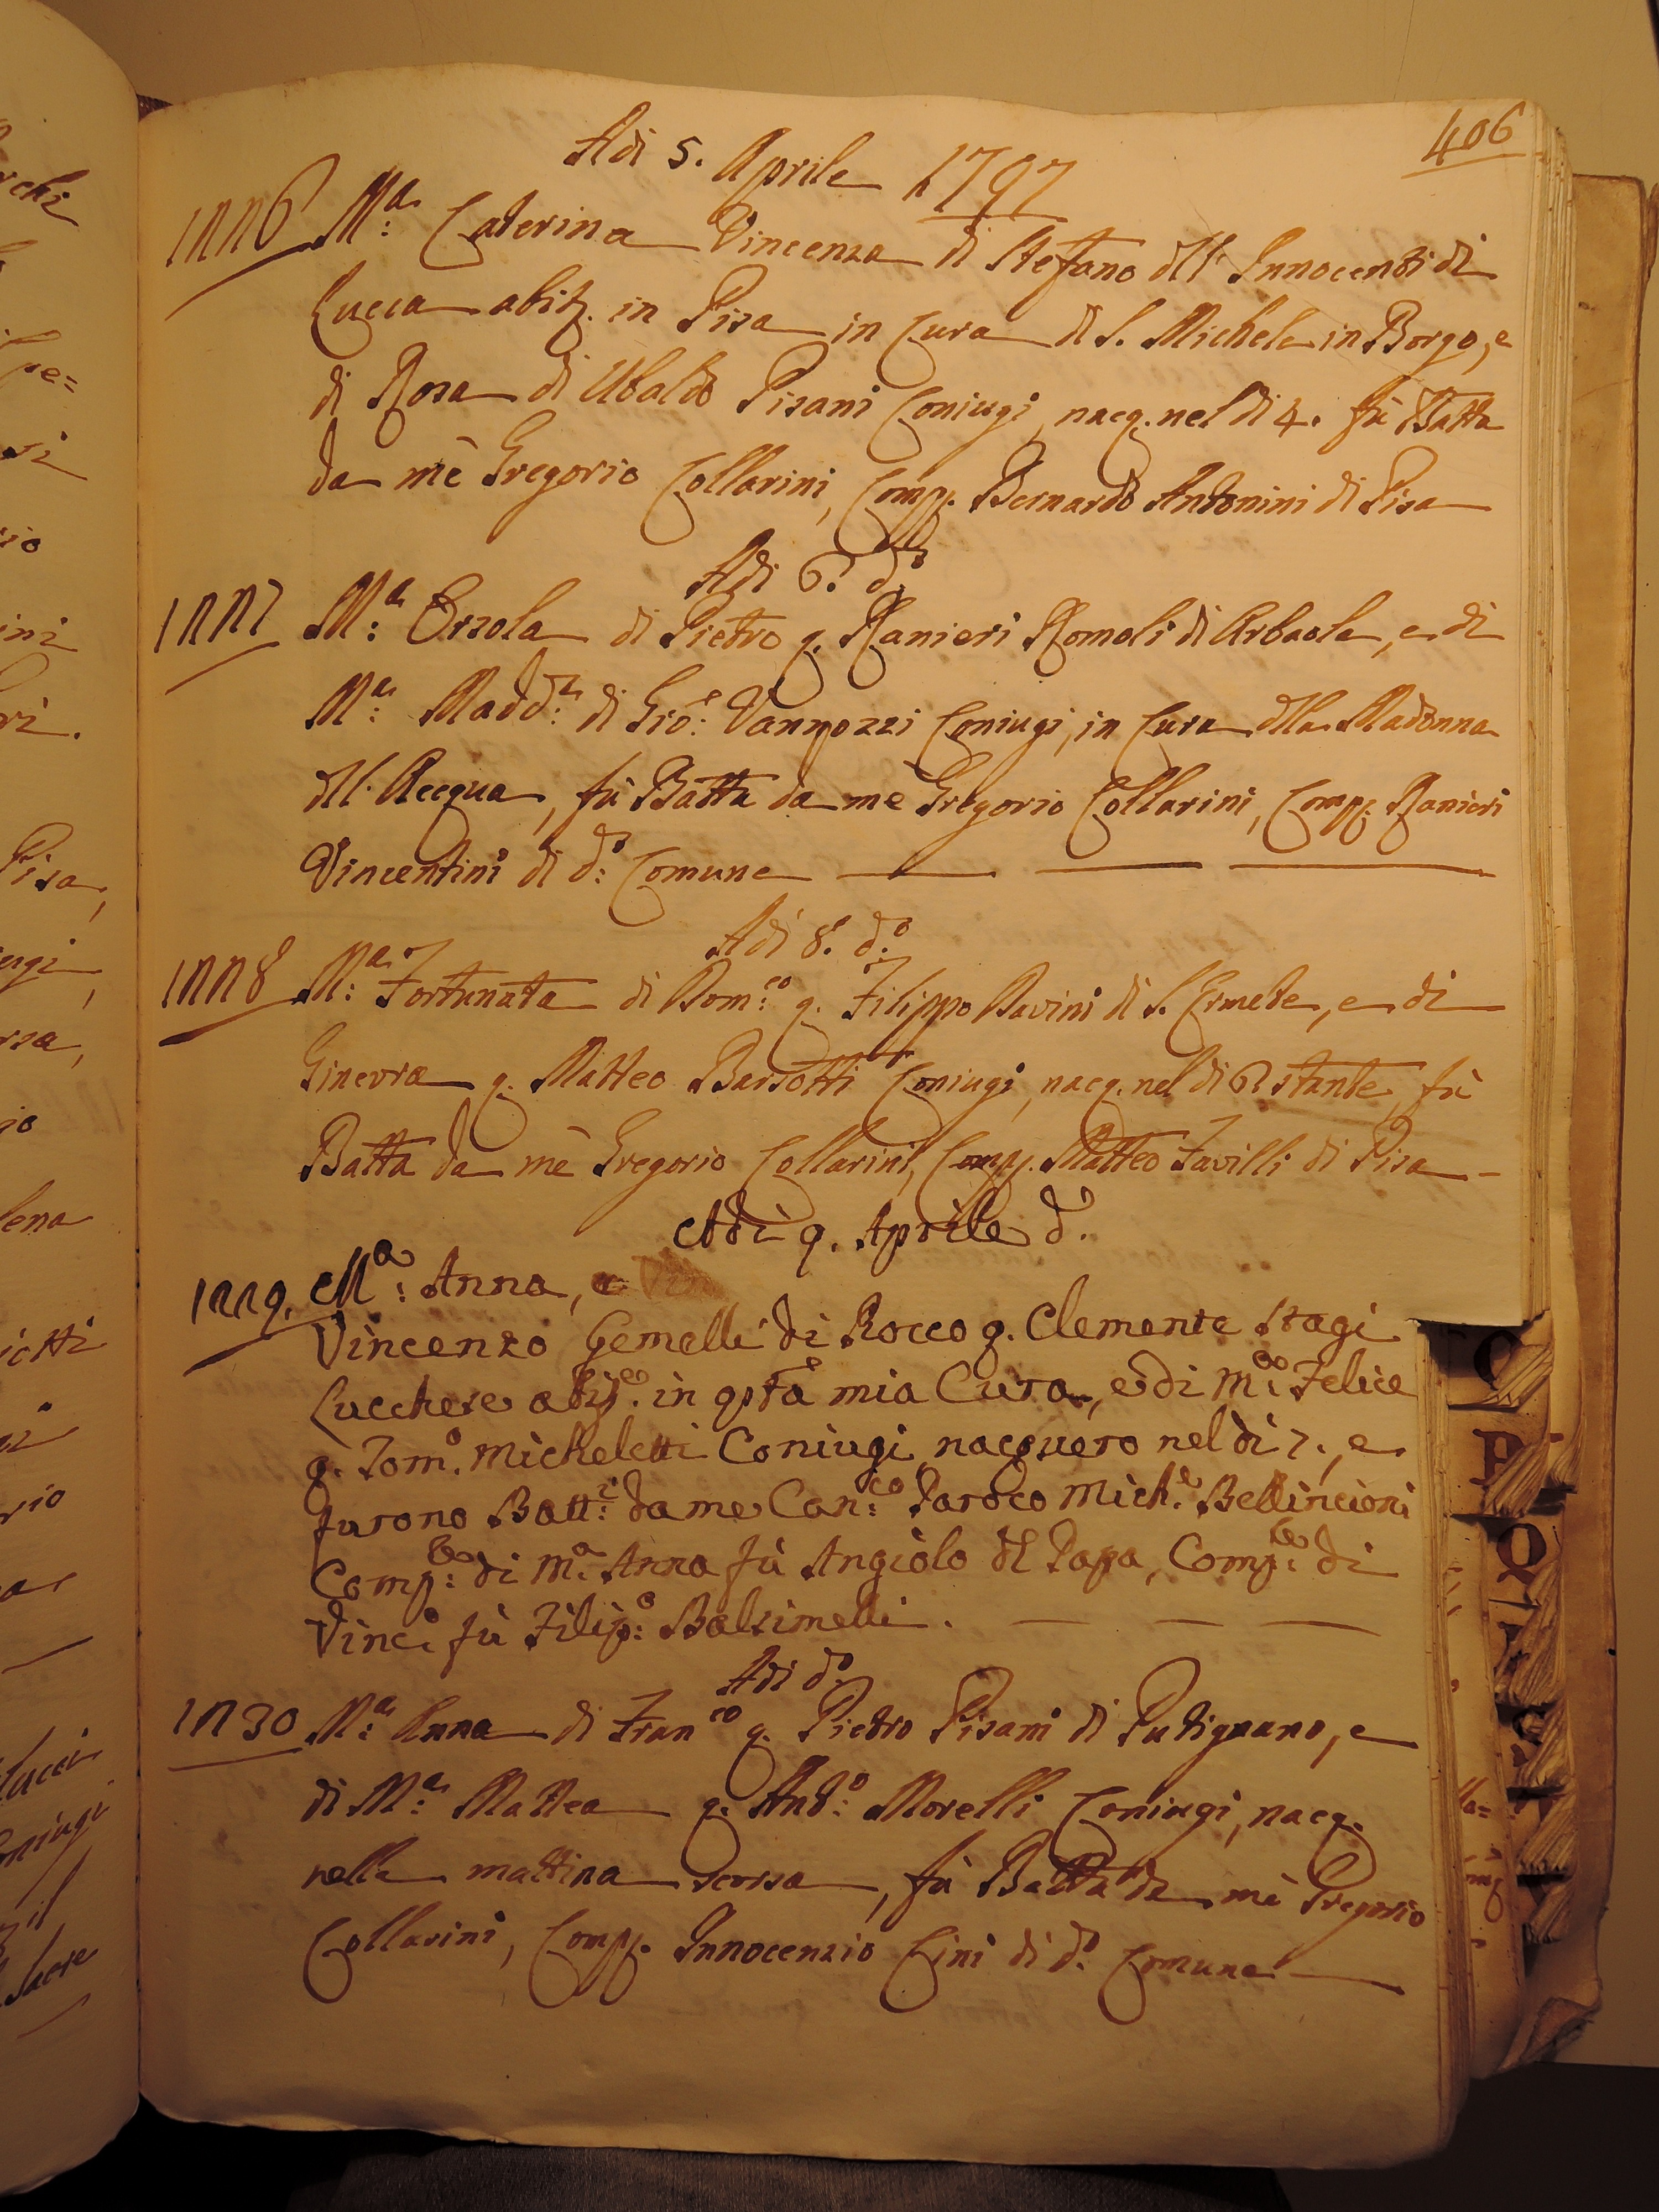 406
Adi 5. Aprile 1797
1226 M:a Caterina Vincenza di Stefano dll' Innocenti di
Lucca abitt. in Pisa in Cura di S. Michele in Borgo, e
di Rosa di Ubaldo Pisani Coniugi, nacq. nel di 4. fù Batta
da mè Gregorio Collarini, Comp. Bernardo Antonini di Pisa
Adi 6. do
1227 M:a Orsola di Pietro q. Ranieri Romoli di Arbaola, e di
M:a Madd:a di Gio:e Vannozzi Coniugi, in Cura dlla Madonna
dll' Acqua, fù Batta da me Gregorio Collarini, Comp. Ranieri
Vincentini di d:o Comune
Adi 8. d:o
1228 M:a Fortunata di Dom:co q. Filippo Bavini di S. Ermete, e di
Ginevra q. Matteo Barsotti Coniugi, nacq. nel di 6 stante, fù
Batta da mè Gregorio Collarini, Comp. Matteo Favilli di Pisa
Adì 9. Aprile d.o
1229. M:a Anna, e
Vincenzo Gemelli di Rocco q. Clemente Stagi
Lucchese abit.e in qsta mia Cura, e di M:a Felice
q. Tom.o Micheletti Coniugi nacquero nel dì 7., e
furono Batt:i da me Can:co Paroco Mich:e Bellincioni
Comp:e di M:a Anna fù Angiolo dl Papa, Comp:e di
Vinc:o fù Filip:o Balsimelli.
Adi d:o
1230 M:a Anna di Fran:co q. Pietro Pisani di Putignano, e
di M:a Mattea q. Ant:o Morelli Coniugi, nacq.
nella mattina scorsa, fù Batta da mè Gregorio
Collarini, Comp. Innocenzio Cini di d:o Comune